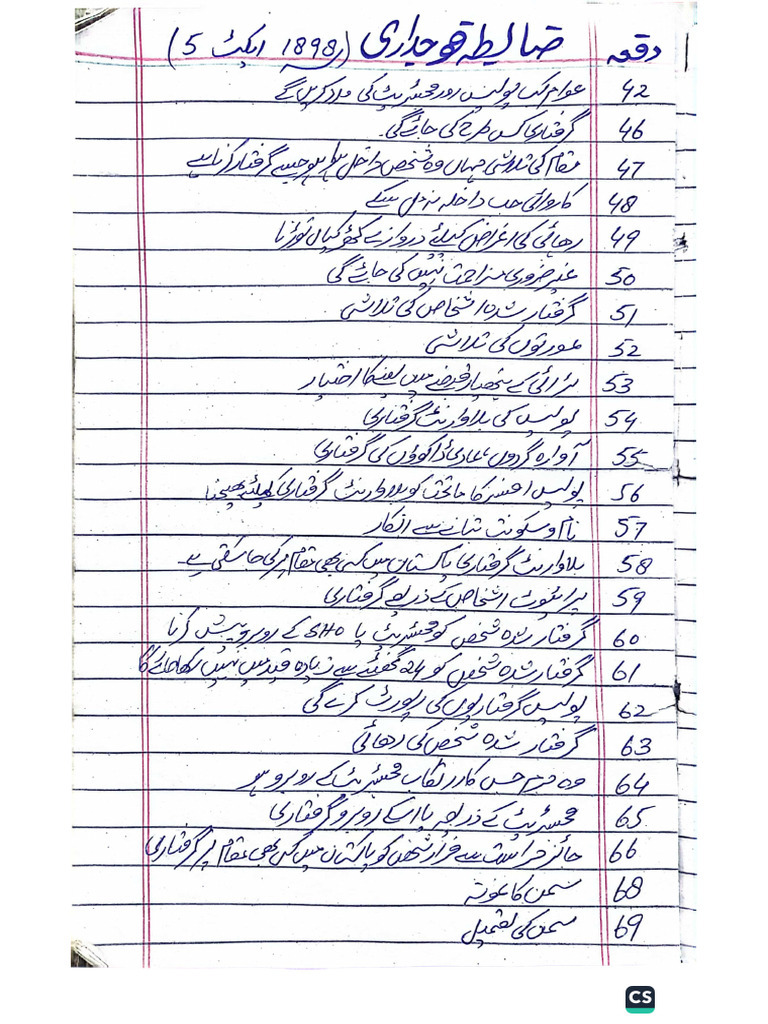 دفعہ ضابطہ فوجداری (1898 ایکٹ 5)
42 عوام کب پولیس اور مجسٹریٹ کی مدد کریں گے
46 گرفتاری کس طرح کی جائے گی۔
47 مقام کی تلاشی جہاں وہ شخص داخل ہوا ہو جسے گرفتار کرنا ہے
48 کاروائی جب داخلہ نہ مل سکے
49 رھائی کی اغراض کیلئے دروازے کھڑکیاں توڑنا
50 غیر ضروری مزاحمت نہیں کی جائے گی
51 گرفتار شدہ اشخاص کی تلاشی
52 عورتوں کی تلاشی
53 لڑائی کے ہتھیار قبضے میں لینے کا اختیار
54 پولیس کی بلا وارنٹ گرفتاری
55 آوارہ گردوں، عادی ڈاکوؤں کی گرفتاری
56 پولیس افسر کا ماتحت کو بلا وارنٹ گرفتاری کیلئے بھیجنا
57 نام و سکونت بتانے سے انکار
58 بلا وارنٹ گرفتاری پاکستان میں کسی بھی مقام پر کی جا سکتی ہے۔
59 پرائیوٹ اشخاص کے ذریعے گرفتاری
60 گرفتار شدہ شخص کو مجسٹریٹ یا SHO کے روبرو پیش کرنا
61 گرفتار شدہ شخص کو 24 گھنٹے سے زیادہ قید میں نہیں رکھا جائے گا
62 پولیس گرفتاریوں کی رپورٹ کرے گی
63 گرفتار شدہ شخص کی رھائی
64 وہ جرم جس کا ارتکاب مجسٹریٹ کے روبرو ہو
65 مجسٹریٹ کے ذریعہ یا اسکے روبرو گرفتاری
66 جائز حراست سے فرار شخص کو پاکستان میں کسی بھی مقام پر گرفتاری
68 سمن کا نمونہ
69 سمن کی تعمیل
CS